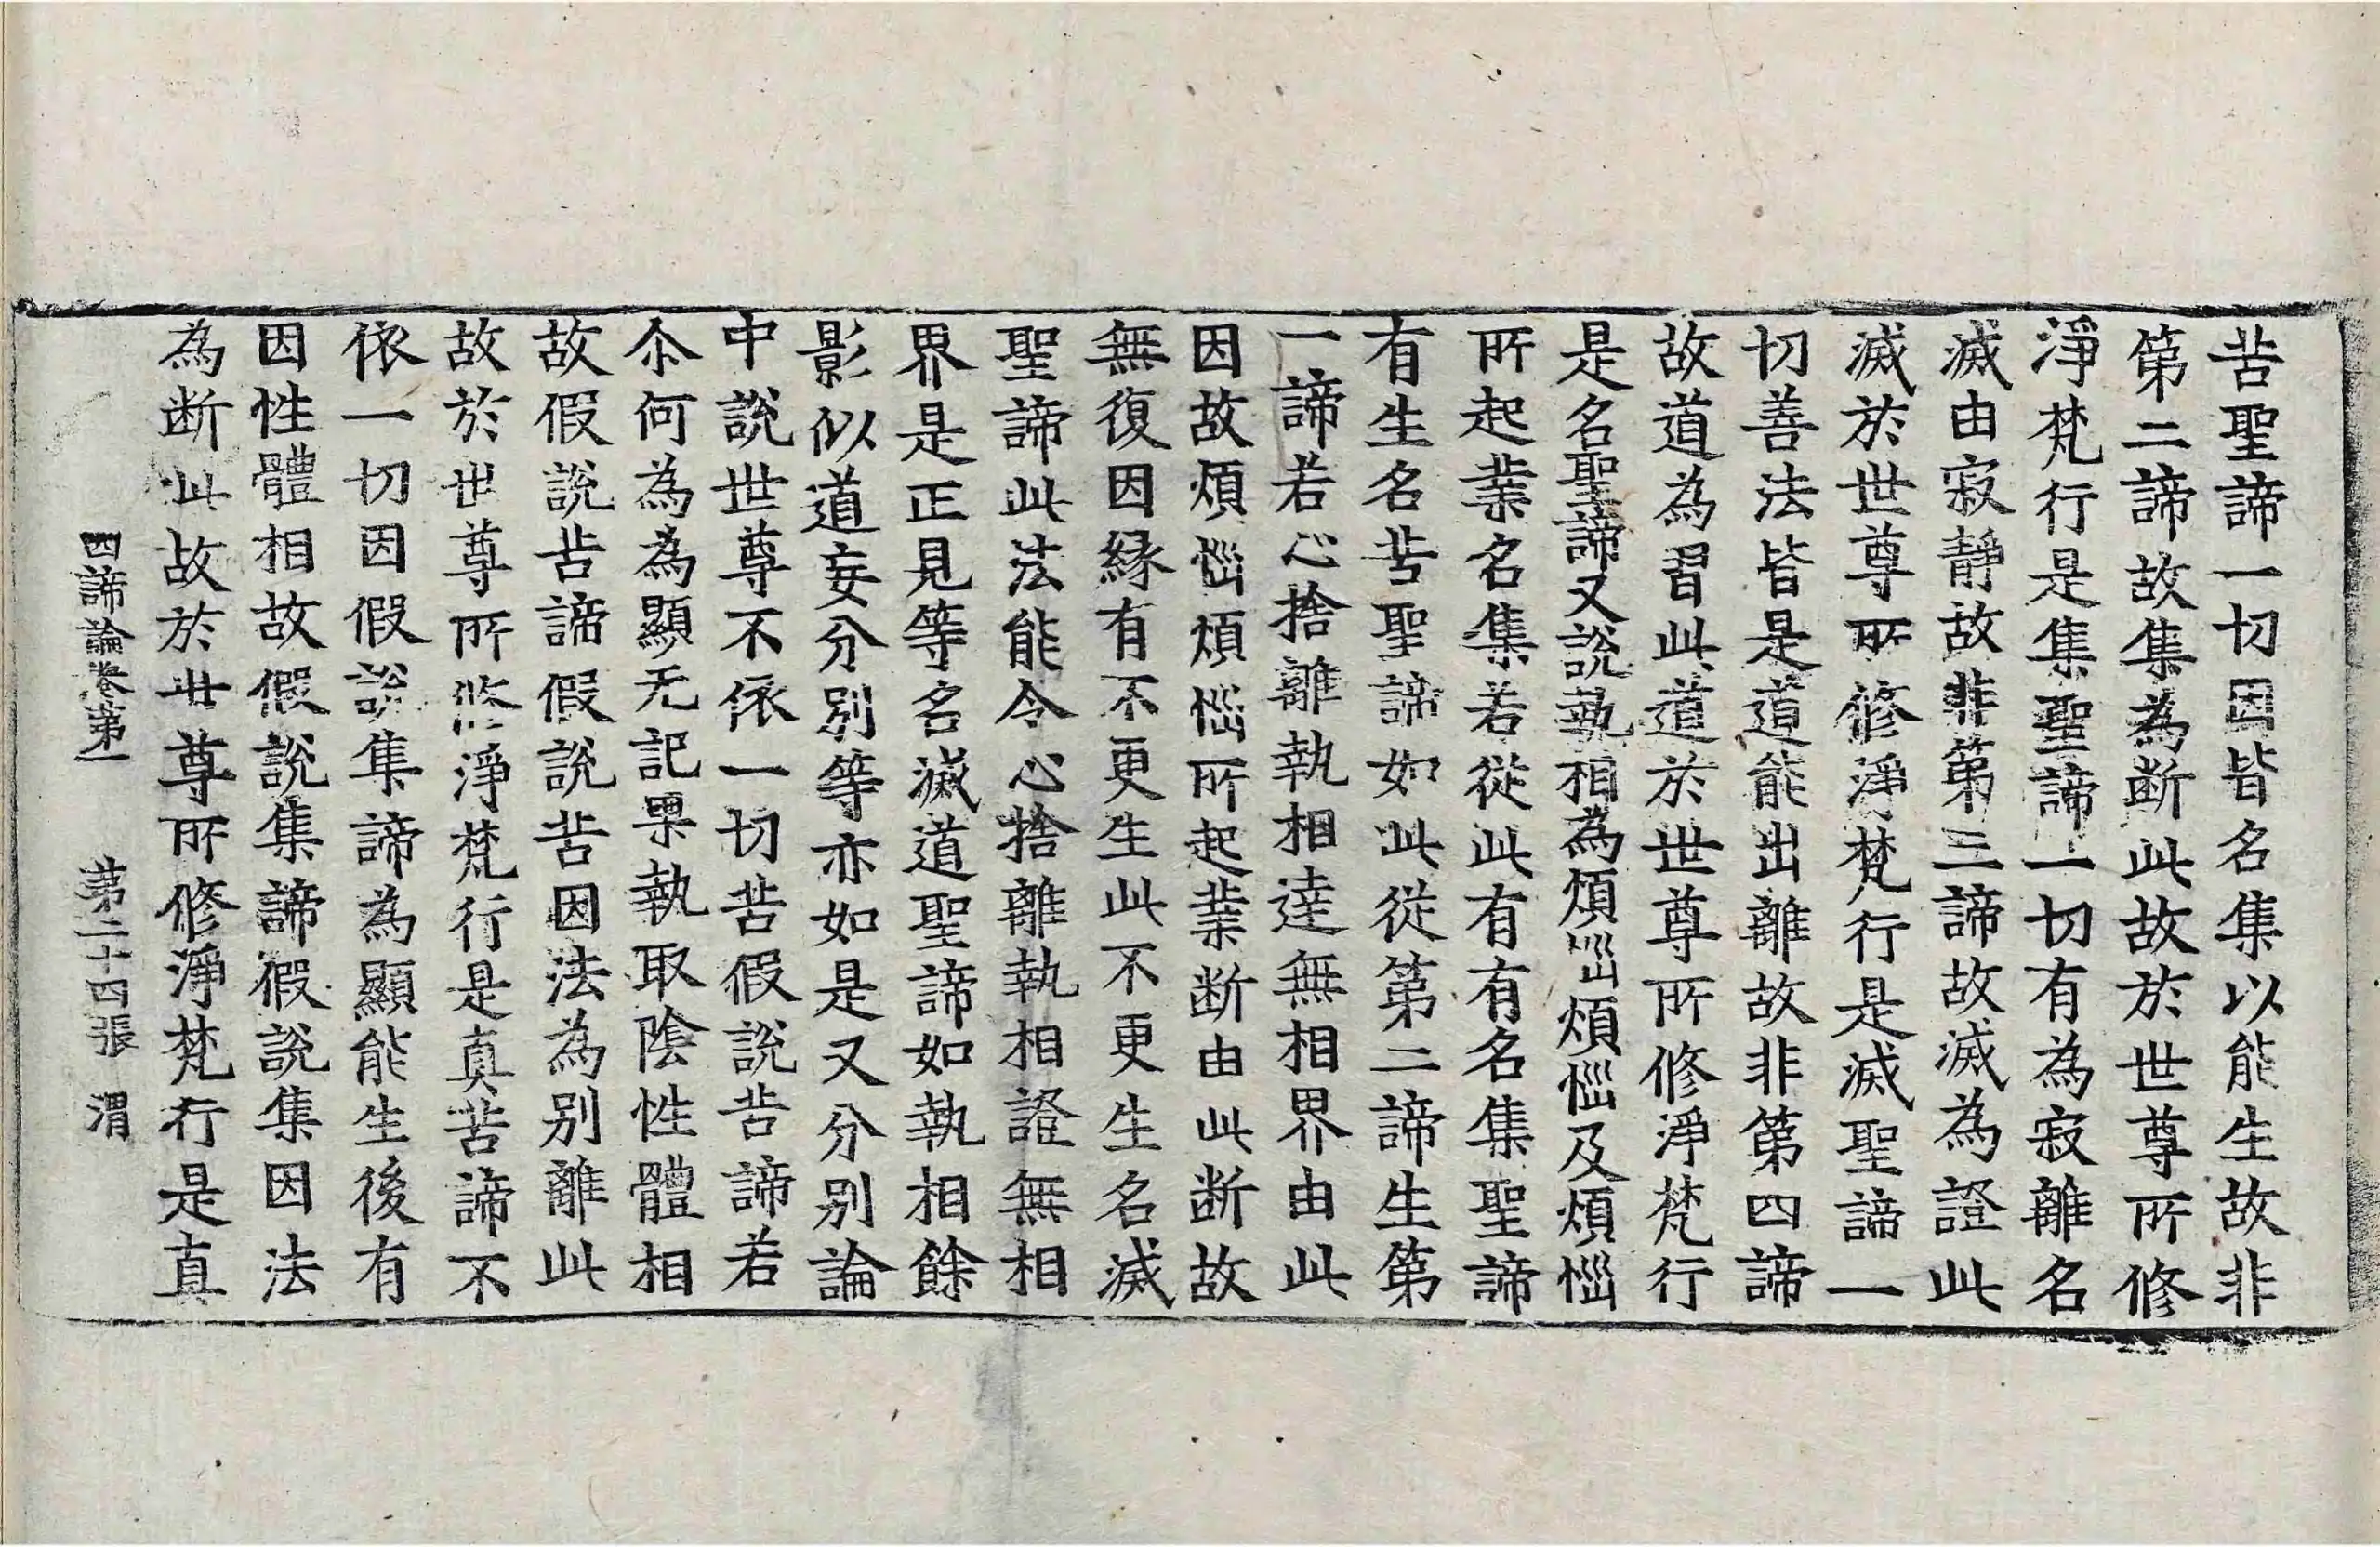 苦聖諦一切因皆名集以能生故非
第二諦故集為断此故於世尊所修
淨梵行是集聖諦一切有為寂離名
滅由寂靜故非第三諦故滅為證此
滅於世尊所修淨梵行是滅聖諦一
切善法皆是道能出離故非第四諦
故道為習此道於世尊所修淨梵行
是名聖諦又說執相為煩惱煩惱及煩惱
所起業名集若從此有有名集聖諦
有生名苦聖諦如此從第二諦生第
一諦若心捨離執相達無相界由此
因故煩惱煩惱所起業断由此断故
無復因緣有不更生此不更生名滅
聖諦此法能令心捨離執相證無相
界是正見等名滅道聖諦如執相餘
影似道妄分別等亦如是又分別論
中說世尊不依一切苦假說苦諦若
尒何為為顯无記果執取陰性體相
故假說苦諦假說苦因法為別離此
故於世尊所修淨梵行是真苦諦不
依一切因假說集諦為顯能生後有
因性體相故假說集諦假說集因法
為断此故於世尊所修淨梵行是真
四諦論卷第一　第二十四張　渭